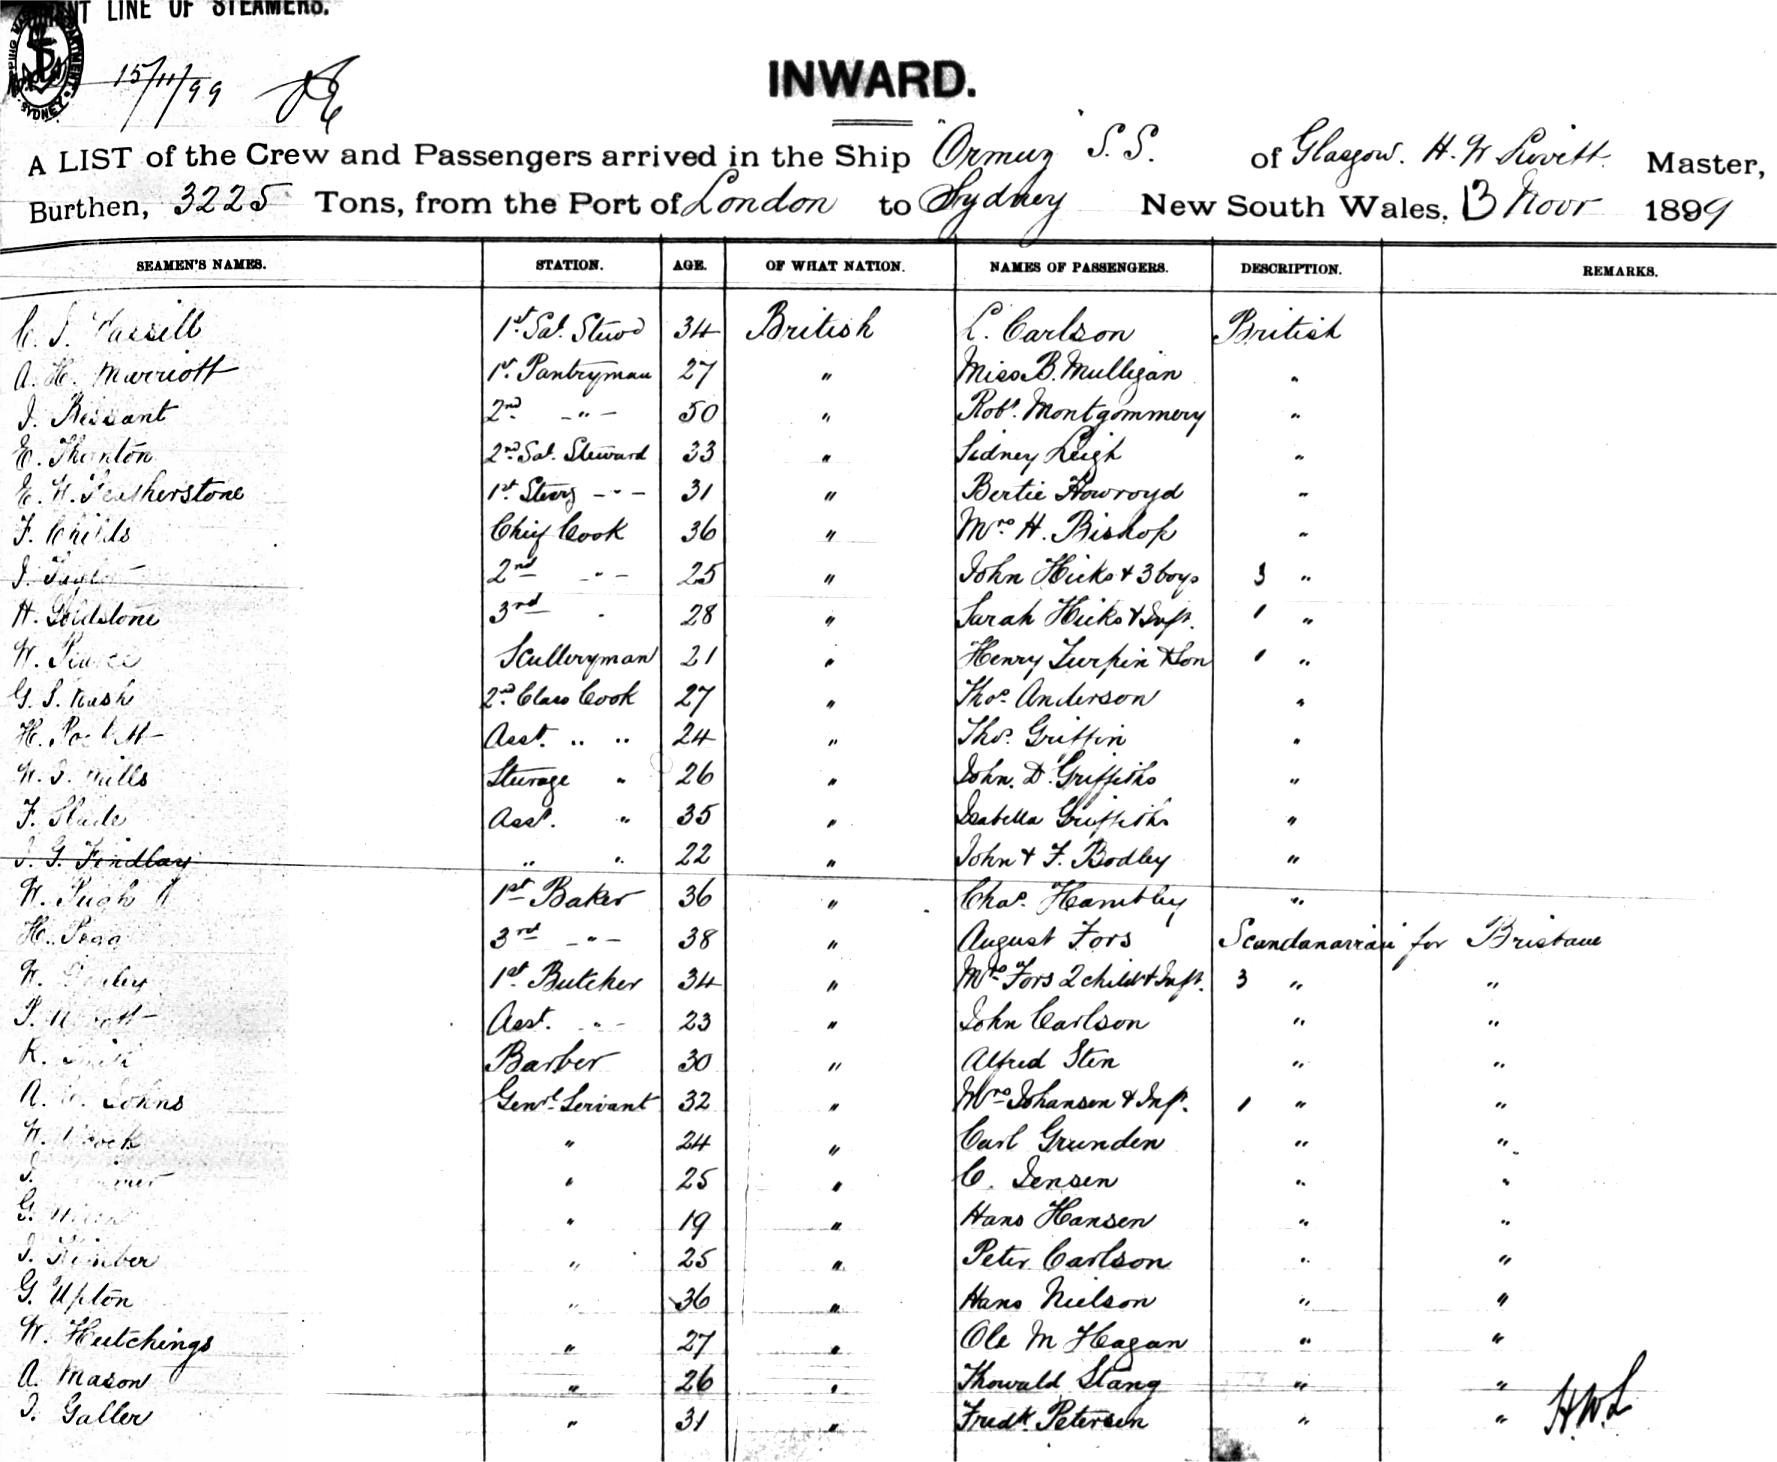 LINE OF STEAMERS.
SYDNEY
15/11/99
INWARD.
A LIST of the Crew and Passengers arrived in the Ship "Ormuz" S.S. of Glasgow. H. W. Lovitt Master,
Burthen, 3225 Tons, from the Port of London to Sydney New South Wales, 13 Novr 1899
SEAMEN'S NAMES. STATION. AGE. OF WHAT NATION. NAMES OF PASSENGERS. DESCRIPTION. REMARKS.
C. J. 1st Sal. Stewd 34 British L. Carlson British
A. H. Marriott 1st Pantryman 27 " Miss B. Mulligan "
J. Bessant 2nd -"- 50 " Robt. Montgommery "
E. Thornton 2nd Sal. Steward 33 " Sidney Leigh "
E. W. Featherstone 1st Steerg -"- 31 " Bertie Howroyd "
F. Childs Chief Cook 36 " Mrs H. Bishop "
J. Taylor 2nd -"- 25 " John Hicks & 3 boys 3 "
H. Goldstone 3rd " 28 " Sarah Hicks & Inft. 1 "
W. Pearce Sculleryman 21 " Henry Turpin & Son 1 "
G. S. Nash 2nd Class Cook 27 " Thos. Anderson "
H. Asst. " " 24 " Thos. Griffin "
W. J. Mills Steerage " 26 " John. D. Griffiths "
F. Slade Asst. " 35 " Isabella Griffiths "
J. G. Findlay " " 22 " John & F. Bodley "
W. Pugh 1st Baker 36 " Chas. Hambley "
H. 3rd -"- 38 " August Fors Scandanavian for Brisbane
W. 1st Butcher 34 " Mrs Fors 2 child & Inft. 3 " "
Asst. -"- 23 " John Carlson " "
Barber 30 " Alfred Sten " "
A. Johns Genrl. Servant 32 " Mrs Johansen & Inft. 1 " "
W. " 24 " Carl Grunden " "
J. " 25 " C. Jensen " "
G. " 19 " Hans Hansen " "
J. Kimber " 25 " Peter Carlson " "
G. Upton " 36 " Hans Nielson " "
W. Hutchings " 27 " Ole M Hagan " "
A. Mason " 26 " Thowald Stang " "
J. Galler " 31 " Fredk. Petersen " "
H.W.L